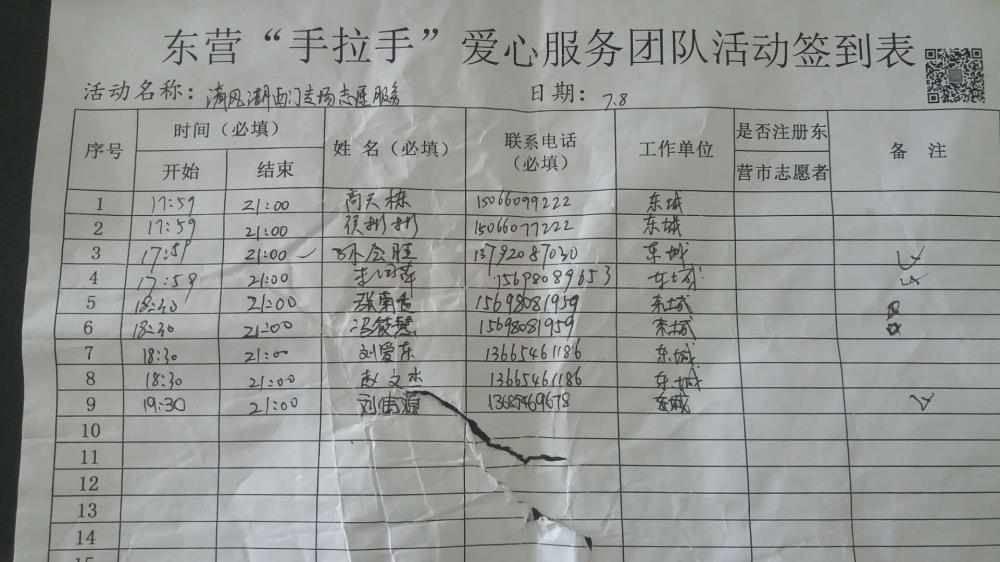 东营“手拉手”爱心服务团队活动签到表
活动名称：清风湖西门支场志愿服务 日期：7.8
序号 时间（必填） 姓名（必填） 联系电话（必填） 工作单位 是否注册东营市志愿者 备注
开始 结束
1 17:59 21:00 高天栋 15066099222 东城
2 17:59 21:00 彬彬 15066077222 东城
3 17:59 21:00 13792087030 东城
4 17:59 21:00 15698089653 东城
5 18:30 21:00 15698081959 东城
6 18:30 21:00 冯筱慧 15698081959 东城
7 18:30 21:00 刘爱东 13665461186 东城
8 18:30 21:00 赵文水 13665461186 东城
9 19:30 21:00 刘信源 东城
10
11
12
13
14
15